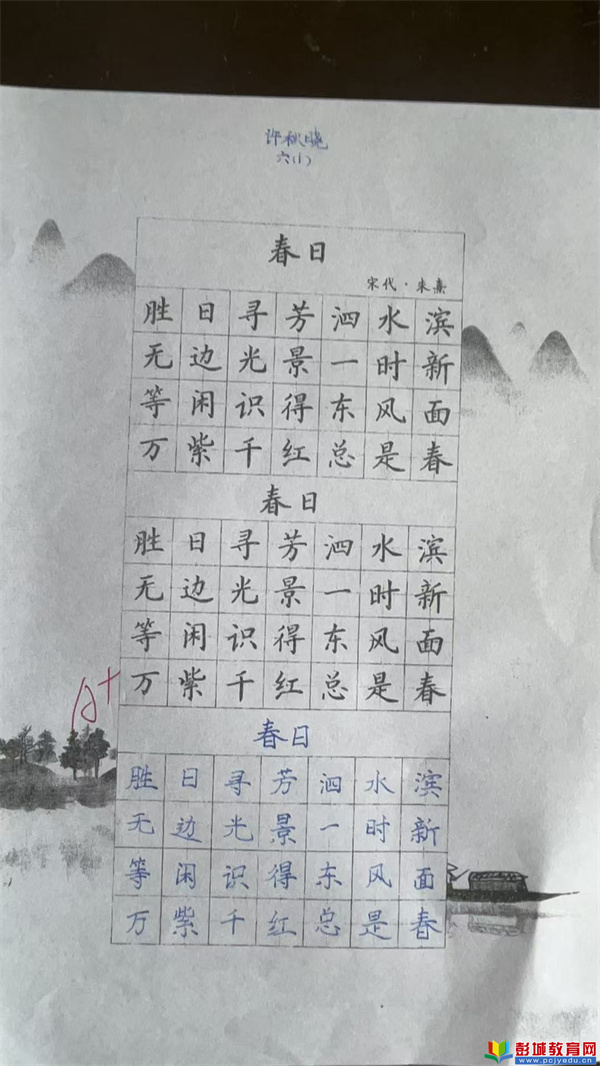 许秋晓
六(1)
春日
宋代·朱熹
胜日寻芳泗水滨
无边光景一时新
等闲识得东风面
万紫千红总是春
春日
胜日寻芳泗水滨
无边光景一时新
等闲识得东风面
万紫千红总是春
A+
春日
胜日寻芳泗水滨
无边光景一时新
等闲识得东风面
万紫千红总是春
彭城教育网
www.pcjyedu.cn